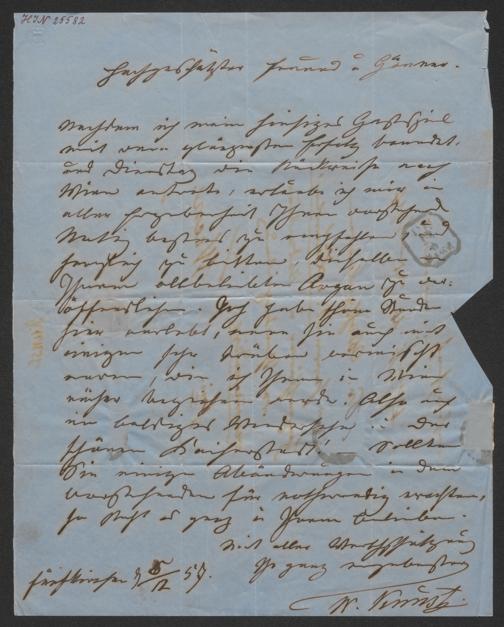 HIN 25582
Hochgeschätzter Freund u Gönner.
Nachdem ich mein hiesiges Gastspiel
mit dem glänzendsten Erfolg beendet,
und Dienstag die Rückreise nach
Wien antrete, erlaube ich mir in
aller Ergebenheit Ihnen vorstehende
Notiz bestens zu empfehlen und
herzlich zu bitten dieselbe in
Ihrem allbeliebten Organ zu ver-
öffentlichen. Ich habe schöne Stunden
hier verlebt, wenn sie auch mit
einigen sehr trüben vermischt
waren, wie ich Ihnen in Wien
näher berichten werde. Also auf
ein baldiges Wiedersehn in der
schönen Kaiserstadt! Sollten
Sie einige Abänderungen in dem
Vorstehenden für nothwendig erachten,
so steht es ganz in Ihrem Belieben.
Mit aller Werthschätzung
Ihr ganz ergebenster
Fünfkirchen d 5/12 57.
W. Kunst